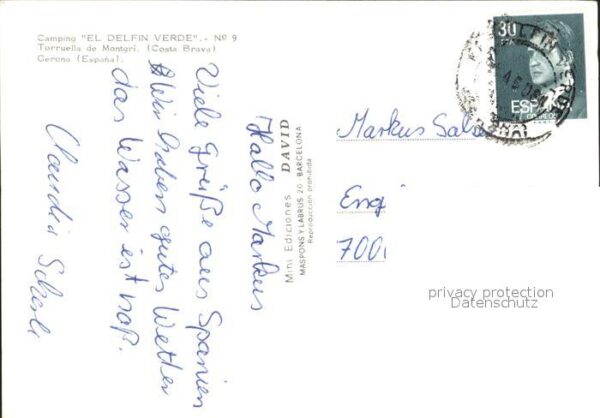 Camping "EL DELFIN VERDE". - Nº 9
Torruella de Montgri. (Costa Brava)
Gerona (España).
Hallo Markus
Viele Grüße aus Spanien
Wir haben gutes Wetter
das Wasser ist naß.
Claudia
Mini Ediciones DAVID
MASPONS Y LABRUS 20 - BARCELONA
Reproducción prohibida
30
PTA
ESPAÑA
CORREOS
Markus
privacy protection
Datenschutz